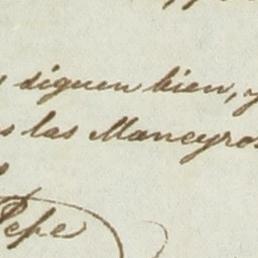 siguen bien, y
s las Maneyro
Pepe